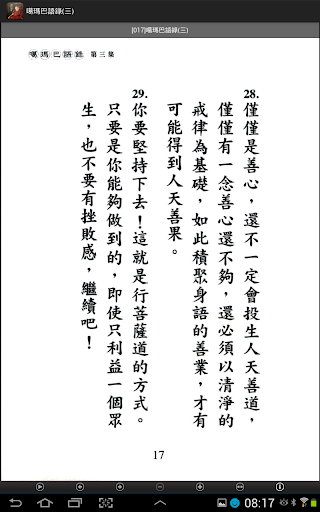 噶瑪巴語錄(三)
[017]噶瑪巴語錄(三)
噶瑪巴語錄 第三集
28. 僅僅是善心，還不一定會投生人天善道，
僅僅有一念善心還不夠，還必須以清淨的
戒律為基礎，如此積聚身語的善業，才有
可能得到人天善果。
29. 你要堅持下去！這就是行菩薩道的方式。
只要是你能夠做到的，即使只利益一個眾
生，也不要有挫敗感，繼續吧！
17
08:17